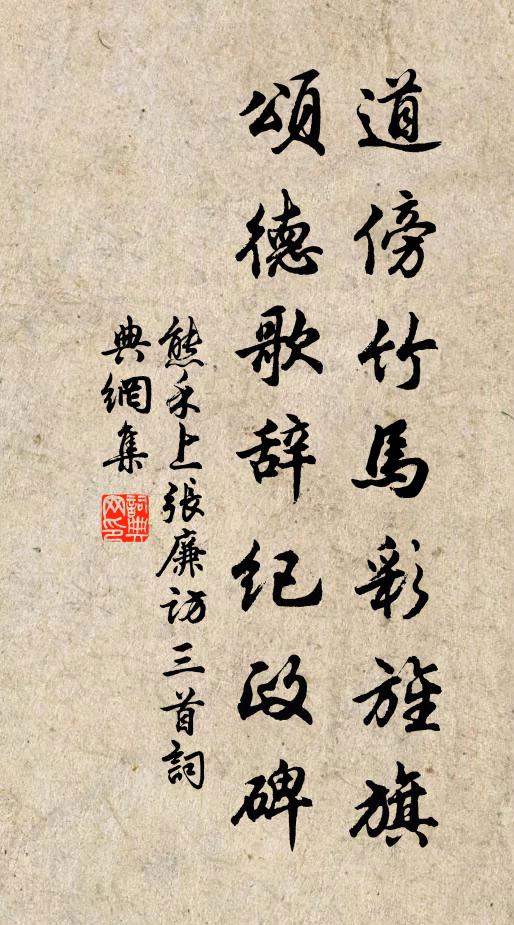 道傍竹馬彩旌旗
頌德歌辞纪政碑
熊禾上張廉访三首詞
典網集
詞典网印